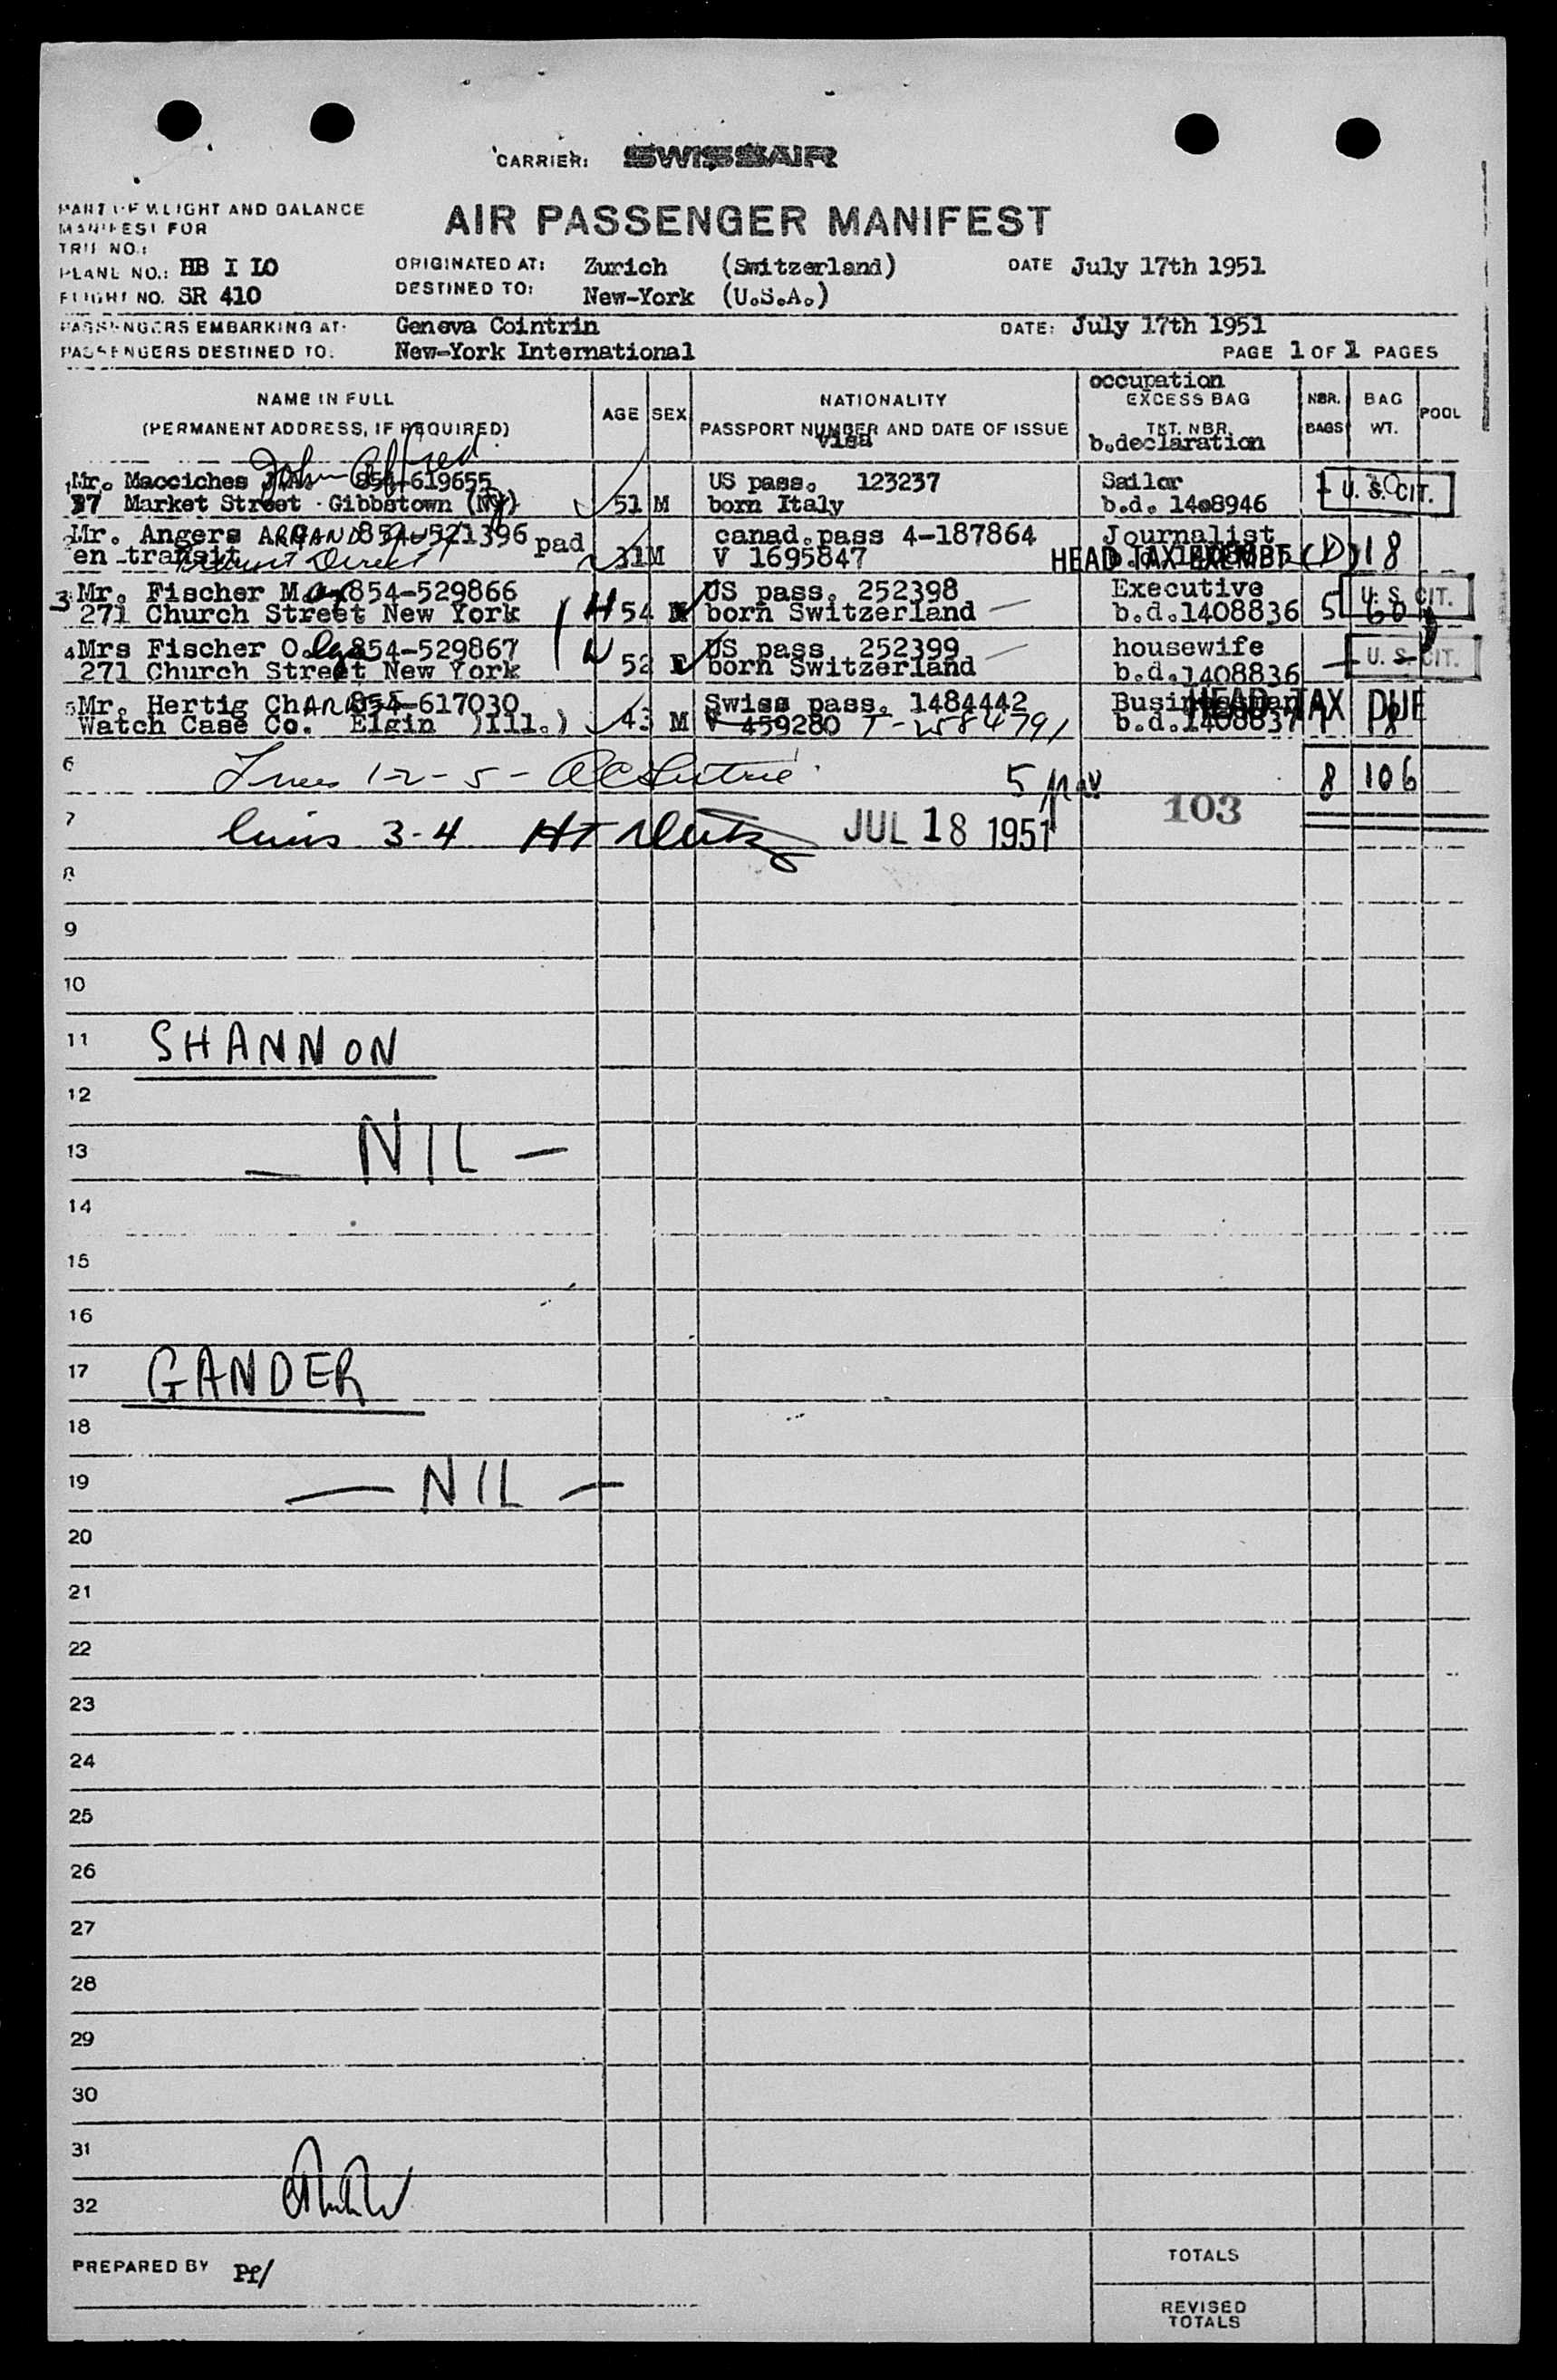 CARRIER: SWISSAIR
PART OF WEIGHT AND BALANCE
MANIFEST FOR
AIR PASSENGER MANIFEST
TRIP NO.:
PLANE NO.: HB I LO
ORIGINATED AT: Zurich (Switzerland) DATE July 17th 1951
FLIGHT NO. SR 410
DESTINED TO: New-York (U.S.A.)
PASSENGERS EMBARKING AT: Geneva Cointrin DATE: July 17th 1951
PASSENGERS DESTINED TO: New-York International
PAGE 1 OF 1 PAGES
NAME IN FULL
(PERMANENT ADDRESS, IF REQUIRED)
AGE
SEX
NATIONALITY
PASSPORT NUMBER AND DATE OF ISSUE
visa
occupation
EXCESS BAG
TKT. NBR.
b.declaration
NBR. BAGS
BAG WT.
POOL
John Alfred
1 Mr. Macciches 854-619655 US pass. 123237 Sailor
37 Market Street Gibbstown (NJ) 51 M born Italy b.d. 1408946 1 U. S. CIT.
2 Mr. Angers ARMAND 854-521396 pad canad.pass 4-187864 Journalist
en transit Transit Direct 31 M V 1695847 HEAD TAX EXEMPT (D) 18
3 Mr. Fischer Max 854-529866 US pass. 252398 Executive
271 Church Street New York H 54 M born Switzerland b.d.1408836 5 60 U. S. CIT.
4 Mrs Fischer Olga 854-529867 US pass 252399 housewife
271 Church Street New York W 52 F born Switzerland b.d.1408836 U. S. CIT.
5 Mr. Hertig CHARLES 854-617030 Swiss pass. 1484442 Businessman HEAD TAX DUE
Watch Case Co. Elgin )Ill.) 43 M V 459280 T-2584791 b.d.1408837 1 18
6 Lines 1-2-5- 5 pax 8 106
7 lines 3-4 JUL 18 1951 103
8
9
10
11 SHANNON
12
13 — NIL —
14
15
16
17 GANDER
18
19 — NIL —
20
21
22
23
24
25
26
27
28
29
30
31
32
PREPARED BY Pf/
TOTALS
REVISED
TOTALS